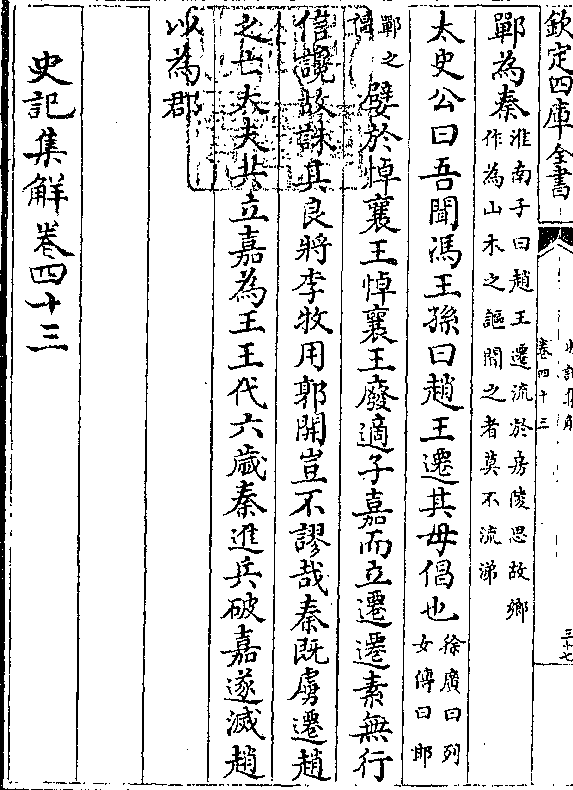 欽定四庫全書
史記集解
卷四十三
三十七
鄲為秦
淮南子曰趙王遷流於房陵思故鄉
作為山水之謳聞之者莫不流涕
太史公曰吾聞馮王孫曰趙王遷其母倡也
徐廣曰列
女傳曰邯
鄲之
倡
嬖於悼襄王悼襄王廢適子嘉而立遷遷素無行
信讒故誅其良將李牧用郭開豈不謬哉秦既虜遷趙
之亡大夫共立嘉為王王代六歲秦進兵破嘉遂滅趙
以為郡
史記集解卷四十三